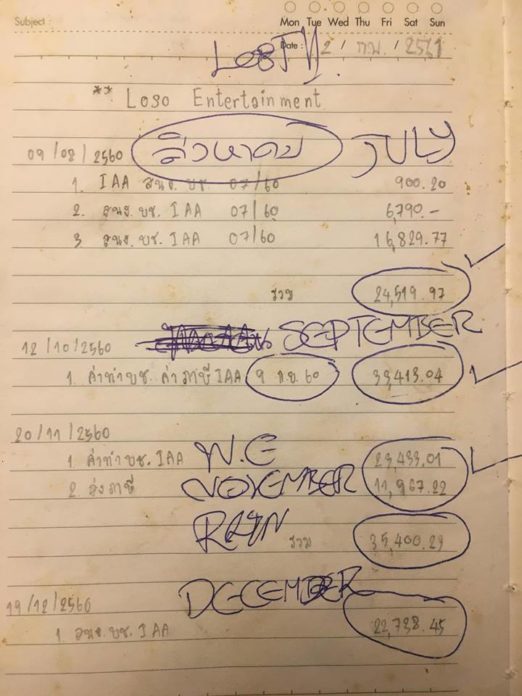 Subject :
Mon Tue Wed Thu Fri Sat Sun
Date : 2 / กพ. / 2561
** Loso Entertainment
09/08/2560 สิงหาคม JULY
1. IAA สนง. บช. 07/60 900.20
2. สนง. บช. IAA 07/60 6,790.-
3 สนง. บช. IAA 07/60 16,829.77
รวม 24,519.97
SEPTEMBER
12/10/2560
1. ค่าทำบช. ค่าภาษี IAA 9 ก.ย. 60 33,413.04
20/11/2560
1 ค่าทำบช. IAA 23,433.01
2 ส่งภาษี NOVEMBER 11,967.22
รวม 35,400.23
DECEMBER
19/12/2560
1 สนง. บช. IAA 22,738.45